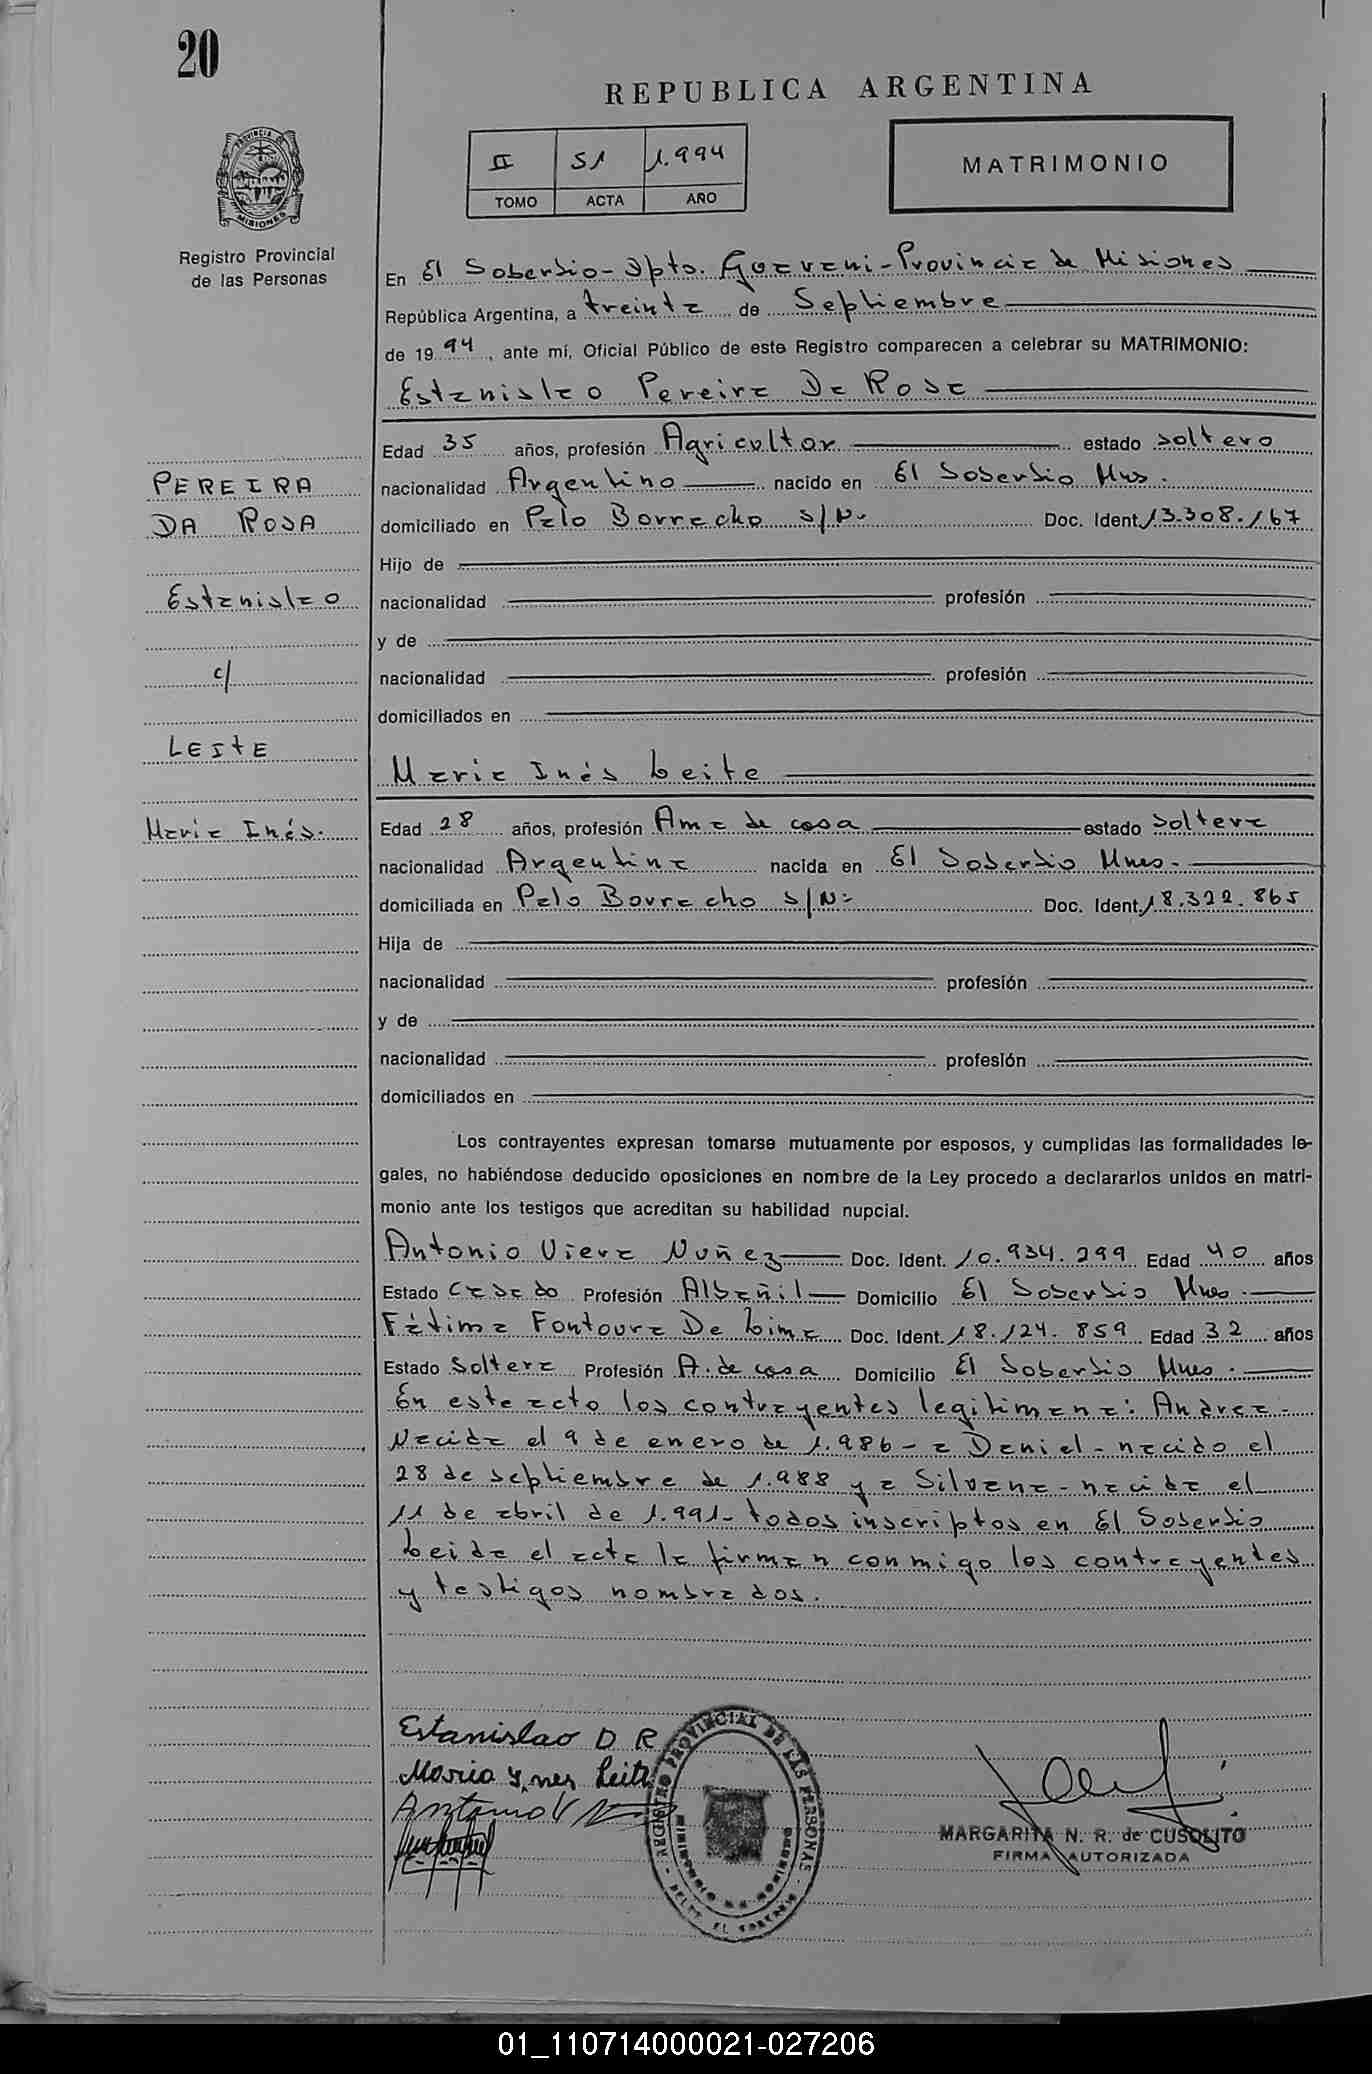 20
REPUBLICA ARGENTINA
PROVINCIA DE
MISIONES
Registro Provincial
de las Personas
II 51 1.994
TOMO ACTA AÑO
MATRIMONIO
En El Soberbio - Dpto. Guarani - Provincia de Misiones
República Argentina, a treinta de Septiembre
de 1994, ante mí, Oficial Público de este Registro comparecen a celebrar su MATRIMONIO:
Estanislao Pereira Da Rosa
Edad 35 años, profesión Agricultor estado soltero
PEREIRA
nacionalidad Argentino nacido en El Soberbio Mns.
DA ROSA
domiciliado en Palo Borracho s/N. Doc. Ident. 13.308.167
Hijo de
Estanislao
nacionalidad profesión
y de
c/
nacionalidad profesión
domiciliados en
LEITE
Maria Inés Leite
Maria Inés.
Edad 28 años, profesión Ama de casa estado soltera
nacionalidad Argentina nacida en El Soberbio Mnes.
domiciliada en Palo Borracho s/N. Doc. Ident. 18.322.865
Hija de
nacionalidad profesión
y de
nacionalidad profesión
domiciliados en
Los contrayentes expresan tomarse mutuamente por esposos, y cumplidas las formalidades le-
gales, no habiéndose deducido oposiciones en nombre de la Ley procedo a declararlos unidos en matri-
monio ante los testigos que acreditan su habilidad nupcial.
Antonio Viera Nuñez Doc. Ident. 10.934.299 Edad 40 años
Estado Casado Profesión Albañil Domicilio El Soberbio Mnes.
Fátima Fontoura De Lima Doc. Ident. 18.124.859 Edad 32 años
Estado Soltera Profesión A. de casa Domicilio El Soberbio Mnes.
En este acto los contrayentes legitiman a: Andrea -
Nacida el 9 de enero de 1.986 - a Daniel - nacido el
28 de septiembre de 1.988 y a Silvana - nacida el
11 de abril de 1.991 - todos inscriptos en El Soberbio
Leida el acta la firman conmigo los contrayentes
y testigos nombrados.
Estanislao D R
Maria Ynes Leite
Antonio V
REGISTRO PROVINCIAL DE LAS PERSONAS - DELEG. EL SOBERBIO
MARGARITA N. R. de CUSOLITO
FIRMA AUTORIZADA
01_110714000021-027206